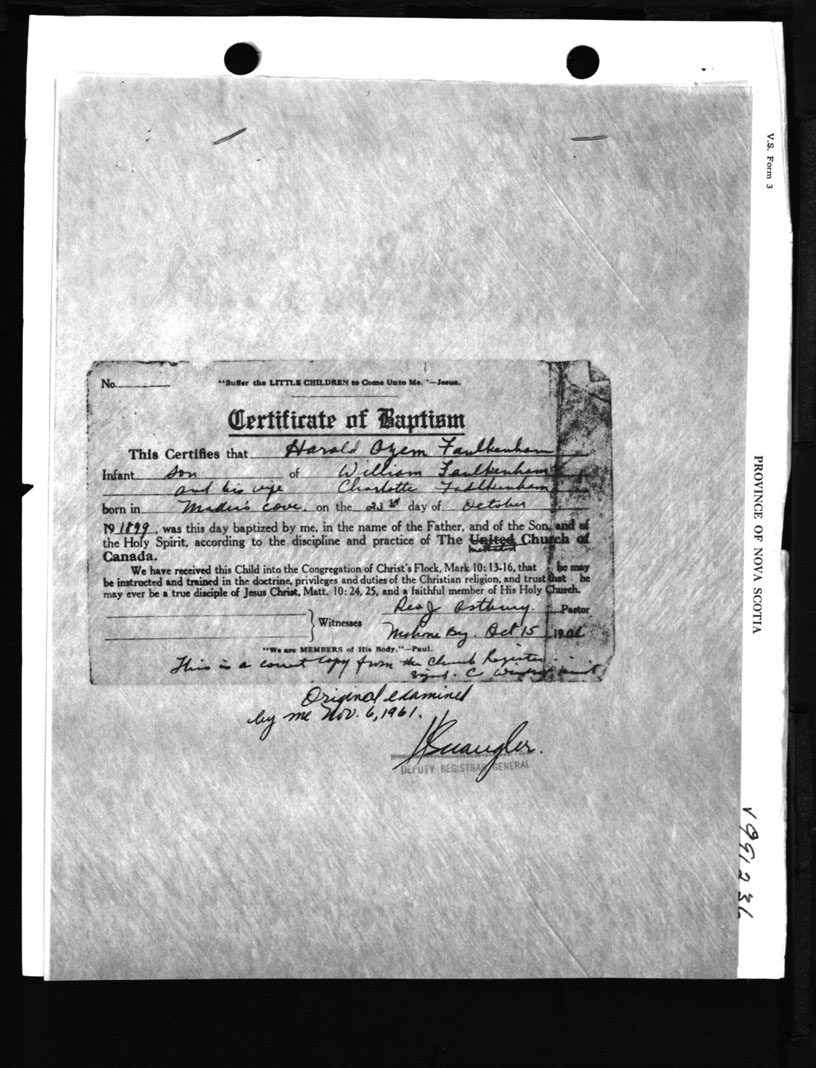 V.S. Form 3
PROVINCE OF NOVA SCOTIA
No.
"Suffer the LITTLE CHILDREN to Come Unto Me."—Jesus.
Certificate of Baptism
This Certifies that Harold Ozem Faulkenham
Infant son of William Faulkenham
and his wife Charlotte Faulkenham
born in Mader's Cove, on the 23rd day of October
19 1899, was this day baptized by me, in the name of the Father, and of the Son, and of
the Holy Spirit, according to the discipline and practice of The United Church of
Methodist
Canada.
We have received this Child into the Congregation of Christ's Flock, Mark 10: 13-16, that he may
be instructed and trained in the doctrine, privileges and duties of the Christian religion, and trust that he
may ever be a true disciple of Jesus Christ, Matt. 10: 24, 25, and a faithful member of His Holy Church.
Rev J. Astbury. Pastor
Witnesses
Mahone Bay. Oct 15
"We are MEMBERS of His Body."—Paul.
This is a correct copy from the Church Register.
Signed. C
Original examined
by me Nov. 6, 1961.
DEPUTY REGISTRAR GENERAL